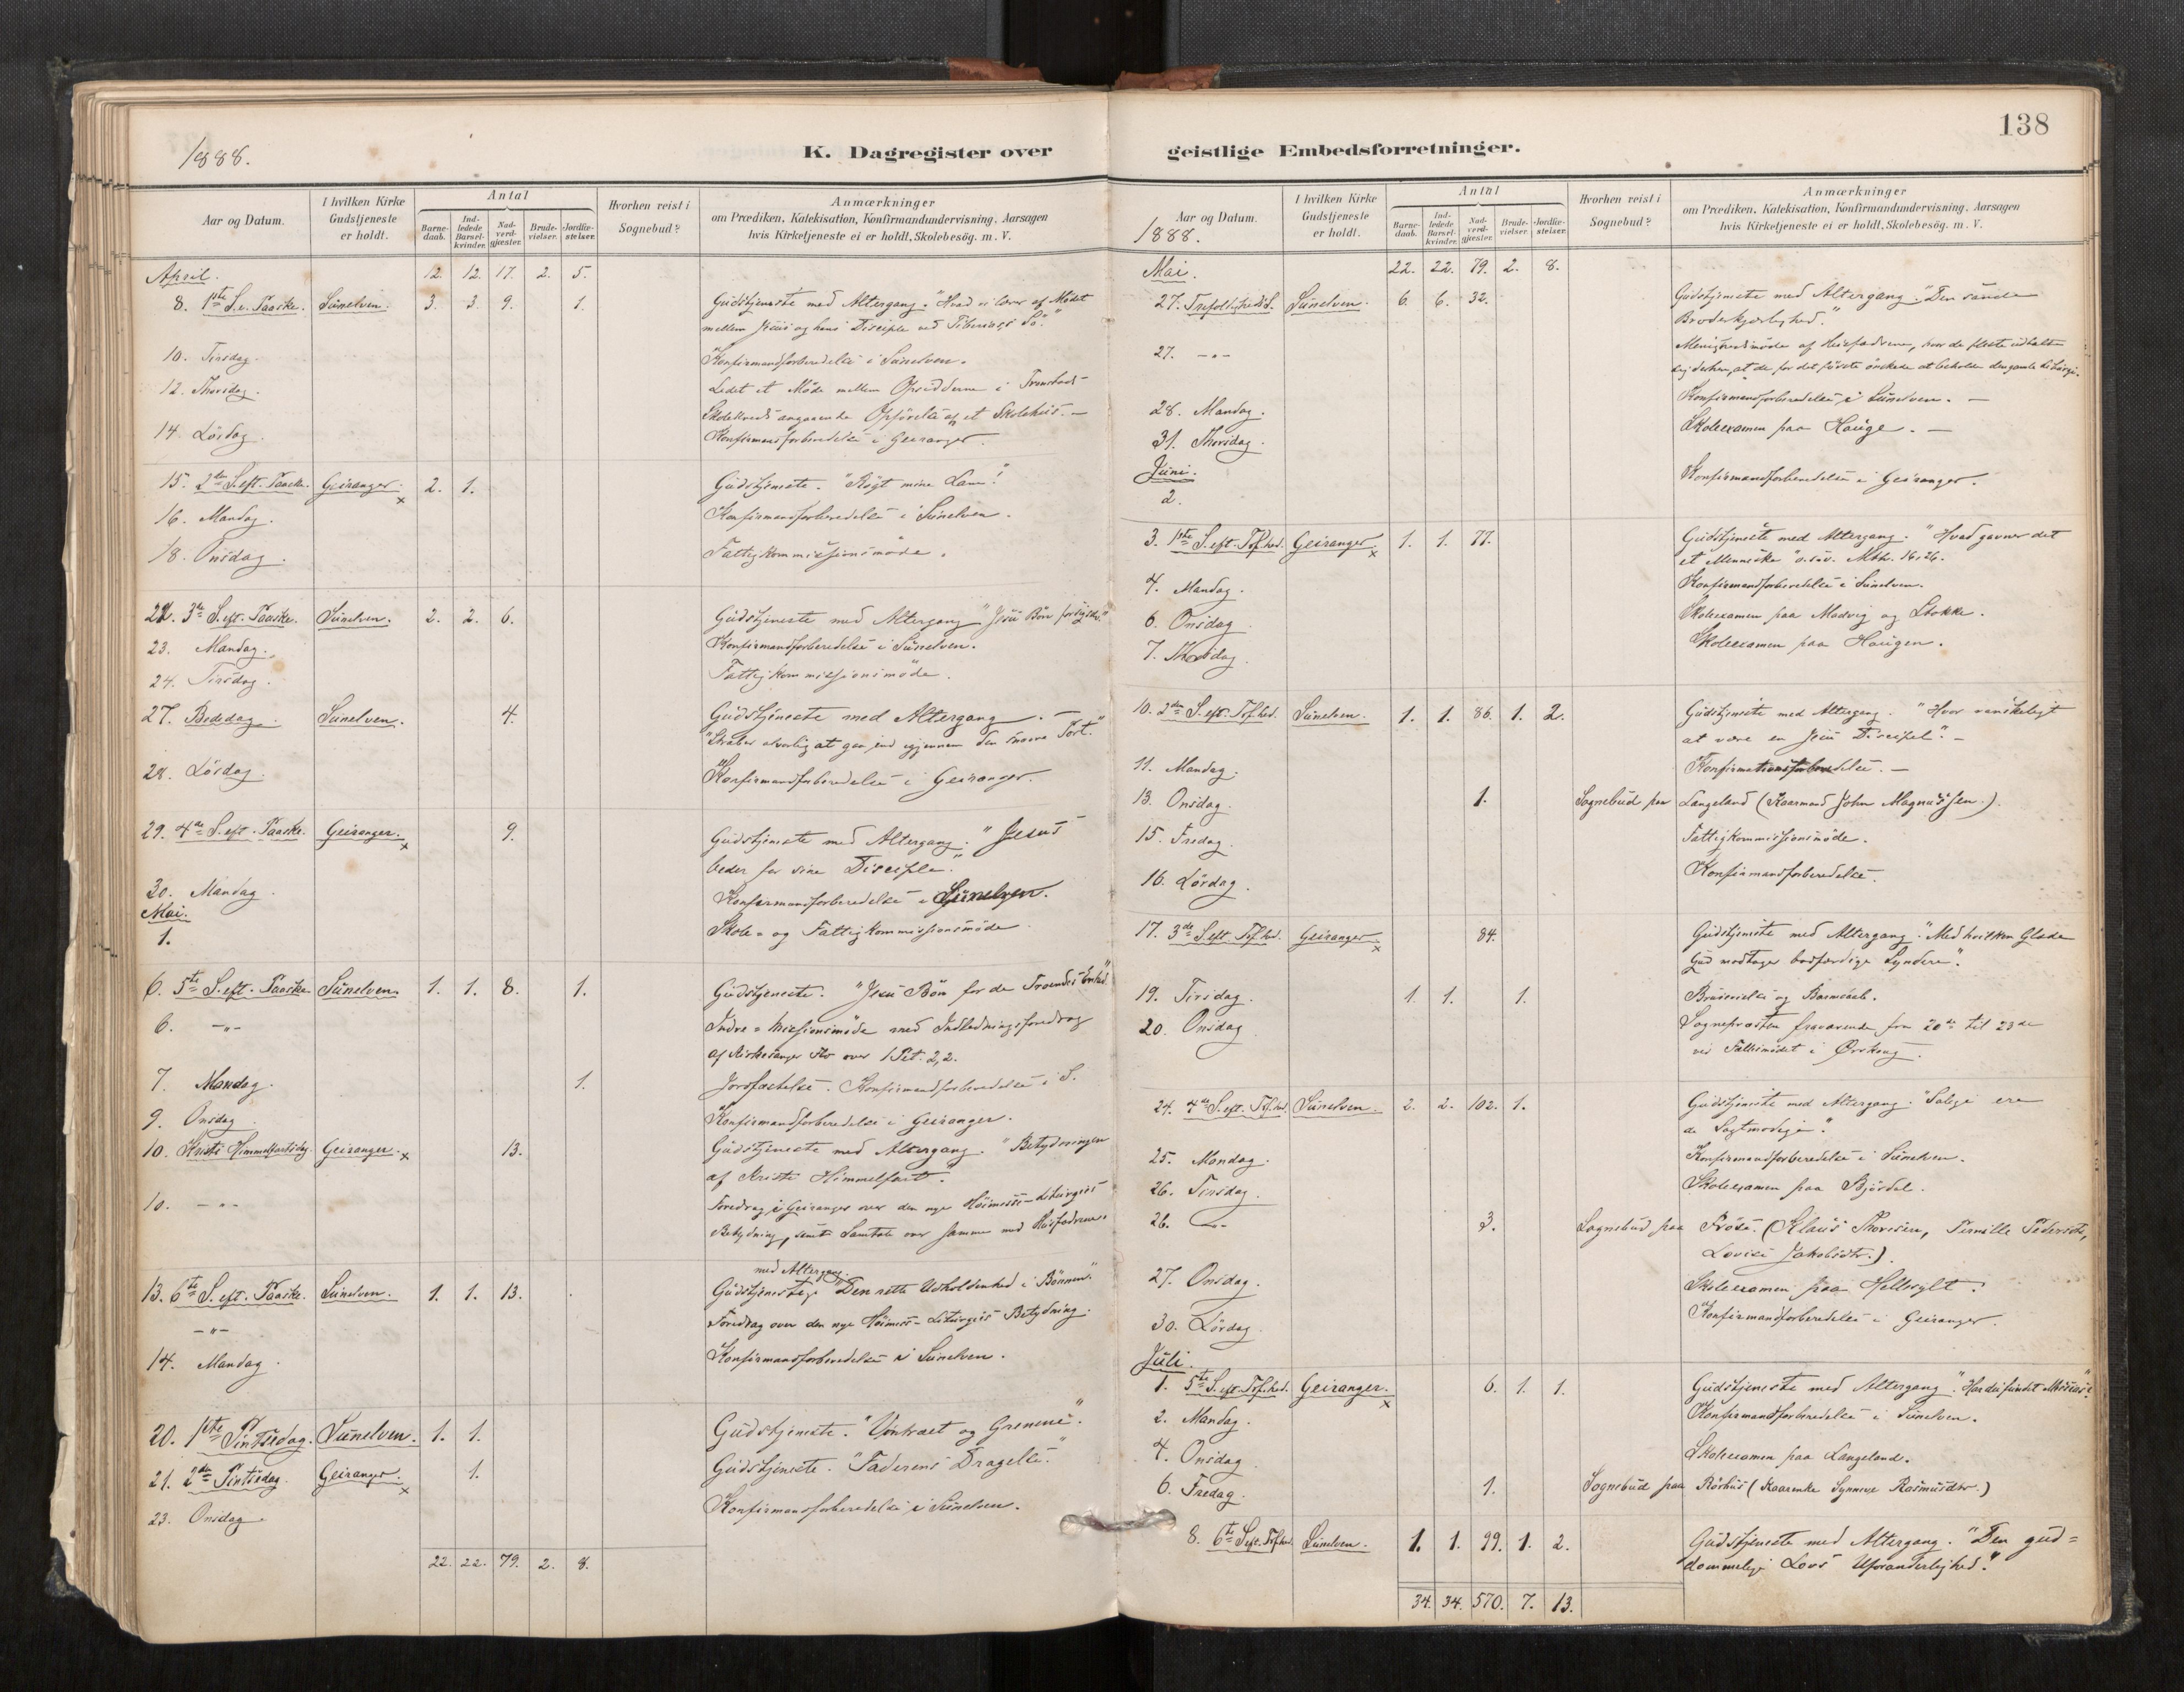 1888.
K. Dagregister over
Aar og Datum.
I hvilken Kirke Gudstjeneste er holdt.
Antal
Barnedaab.
Indledede Barselkvinder.
Nadverdgjæster.
Brudevielser.
Jordfæstelser.
Hvorhen reist i Sognebud?
Anmærkninger
om Prædiken, Katekisation, Konfirmandundervisning, Aarsagen
hvis Kirketjeneste ei er holdt, Skolebesøg. m. V.
April. 12. 12. 17. 2. 5.
8. 1ste S. e. Paaske. Sunelven. 3. 3. 9. 1. Gudstjeneste med Altergang. "Hvad vi lærer af Mödet
mellem Jesus og hans Disciple ved Tiberias's Sö."
10. Tirsdag. Konfirmandforberedelse i Sunelven.
12. Thorsdag. Ledet et Möde mellem Opsidderne i
Skolekreds angaaende Opförelse af et Skolehus. —
14. Lördag. Konfirmandforberedelse i Geiranger.
15. 2den S. eft. Paaske. Geiranger. x 2. 1. Gudstjeneste. "Rögt mine Lam."
16. Mandag. Konfirmandforberedelse i Sunelven.
18. Onsdag. Fattigkommissionsmöde.
22. 3de S. eft. Paaske. Sunelven. 2. 2. 6. Gudstjeneste med Altergang "Jesu Bön for sig selv."
23. Mandag. Konfirmandforberedelse i Sunelven.
24. Tirsdag. Fattigkommissionsmöde.
27. Bededag. Sunelven. 4. Gudstjeneste med Altergang. —
"Stræber alvorlig at gaa ind igjennem den snevre Port."
28. Lördag. Konfirmandforberedelse i Geiranger.
29. 4de S. eft. Paaske. Geiranger. x 9. Gudstjeneste med Altergang. "Jesus
beder for sine Disciple."
30. Mandag. Konfirmandforberedelse i Sunelven.
Mai.
1. Skole- og Fattigkommissionsmöde
6. 5te S. eft. Paaske Sunelven. 1. 1. 8. 1. Gudstjeneste. "Jesu Bön for de Troendes Enhed."
6. -"- Indre-Missionsmöde med Indledningsforedrag
af Kirkesanger over 1 Pet. 2,2.
7. Mandag. 1. Jordfæstelse. Konfirmandforberedelse i S.
9. Onsdag Konfirmandforberedelse i Geiranger.
10. Kristi Himmelfartsdag. Geiranger. x 13. Gudstjeneste med Altergang. "Betydningen
af Kristi Himmelfart."
10. -"- Foredrag i Geiranger over den nye Höimesse-Liturgies
Betydning, samt Samtale over samme med Husfædrene.
med Altergang.
13. 6te S. eft. Paaske. Sunelven. 1. 1. 13. Gudstjeneste "Den rette Udholdenhed i Bönnen."
-"- Foredrag over den nye Höimesse-Liturgies Betydning.
14. Mandag. Konfirmandforberedelse i Sunelven.
20. 1ste Pintsedag. Sunelven. 1. 1. Gudstjeneste. "Vintræet og Grenene."
21. 2den Pintsedag. Geiranger. x 1. Gudstjeneste. "Faderens Dragelse."
23. Onsdag. Konfirmandforberedelse i Sunelven.
22. 22. 79. 2. 8.
138
geistlige Embedsforretninger.
Aar og Datum.
1888.
I hvilken Kirke Gudstjeneste er holdt.
Antal
Barnedaab.
Indledede Barselkvinder.
Nadverdgjæster.
Brudevielser.
Jordfæstelser.
Hvorhen reist i Sognebud?
Anmærkninger
om Prædiken, Katekisation, Konfirmandundervisning, Aarsagen
hvis Kirketjeneste ei er holdt, Skolebesøg. m. V.
Mai. 22. 22. 79. 2. 8.
27. Trefoldigheds S. Sunelven. 6. 6. 32. Gudstjeneste med Altergang. "Den sande
Broderkjærlighed."
27. -"- Menighedsmöde af Husfædrene, hvor de fleste udtalte
sig derhen, at de for det förste önskede at beholde den gamle Liturgi.
28. Mandag. Konfirmandforberedelse i Sunelven. —
31. Thorsdag. Skoleexamen paa Hauge. —
Juni.
2. Konfirmandforberedelse i Geiranger.
3. 1ste S. eft. Tref.hed. Geiranger. x 1. 1. 77. Gudstjeneste med Altergang. "Hvad gavner det
et Menneske" o.s.v. Mtth. 16,26.
4. Mandag. Konfirmandforberedelse i Sunelven.
6. Onsdag Skoleexamen paa Madvig og Stokke.
7. Thorsdag. Skoleexamen paa Haugen.
10. 2den S. eft. Tref.hed. Sunelven. 1. 1. 86. 1. 2. Gudstjeneste med Altergang. "Hvor vanskeligt
at være en Jesu Discipel." —
11. Mandag. Konfirmationsforberedelse. —
13. Onsdag. 1. Sognebud paa Langeland (Kaarmand John Magnussen.)
15. Fredag. Fattigkommissionsmöde.
16. Lördag. Konfirmandforberedelse.
17. 3de S. eft. Tref.hed. Geiranger. x 84. Gudstjeneste med Altergang. "Med hvilken Glæde
Gud modtager bodfærdige Syndere."
19. Tirsdag. 1. 1. 1. Brudevielse og Barnedaab.
20. Onsdag Sognepræsten fraværende fra 20de til 23de
ved i Örskoug.
24. 4de S. eft. Tref.hed. Sunelven. 2. 2. 102. 1. Gudstjeneste med Altergang. "Salige ere
de Sagtmodige."
25. Mandag. Konfirmandforberedelse i Sunelven.
26. Tirsdag. Skoleexamen paa Björdal.
26. -"- 3. Sognebud paa (Klaus Thoresen, Pernille Pedersdtr,
Lovise Jakobsdtr.)
27. Onsdag. Skoleexamen paa Hellesylt.
30. Lördag. Konfirmandforberedelse i Geiranger.
Juli.
1. 5te S. eft. Tref.hed. Geiranger. x 6. 1. 1. Gudstjeneste med Altergang. "Har du fundet Messias?"
2. Mandag. Konfirmandforberedelse i Sunelven.
4. Onsdag Skoleexamen paa Langeland.
6. Fredag. 1. Sognebud paa Rörhus (Kaarenke Synneve Rasmusdtr.)
8. 6te S. eft. Tref.hed. Sunelven. 1. 1. 99. 1. 2. Gudstjeneste med Altergang. "Den gud=
dommelige Lovs Uforanderlighed."
34. 34. 570. 7. 13.